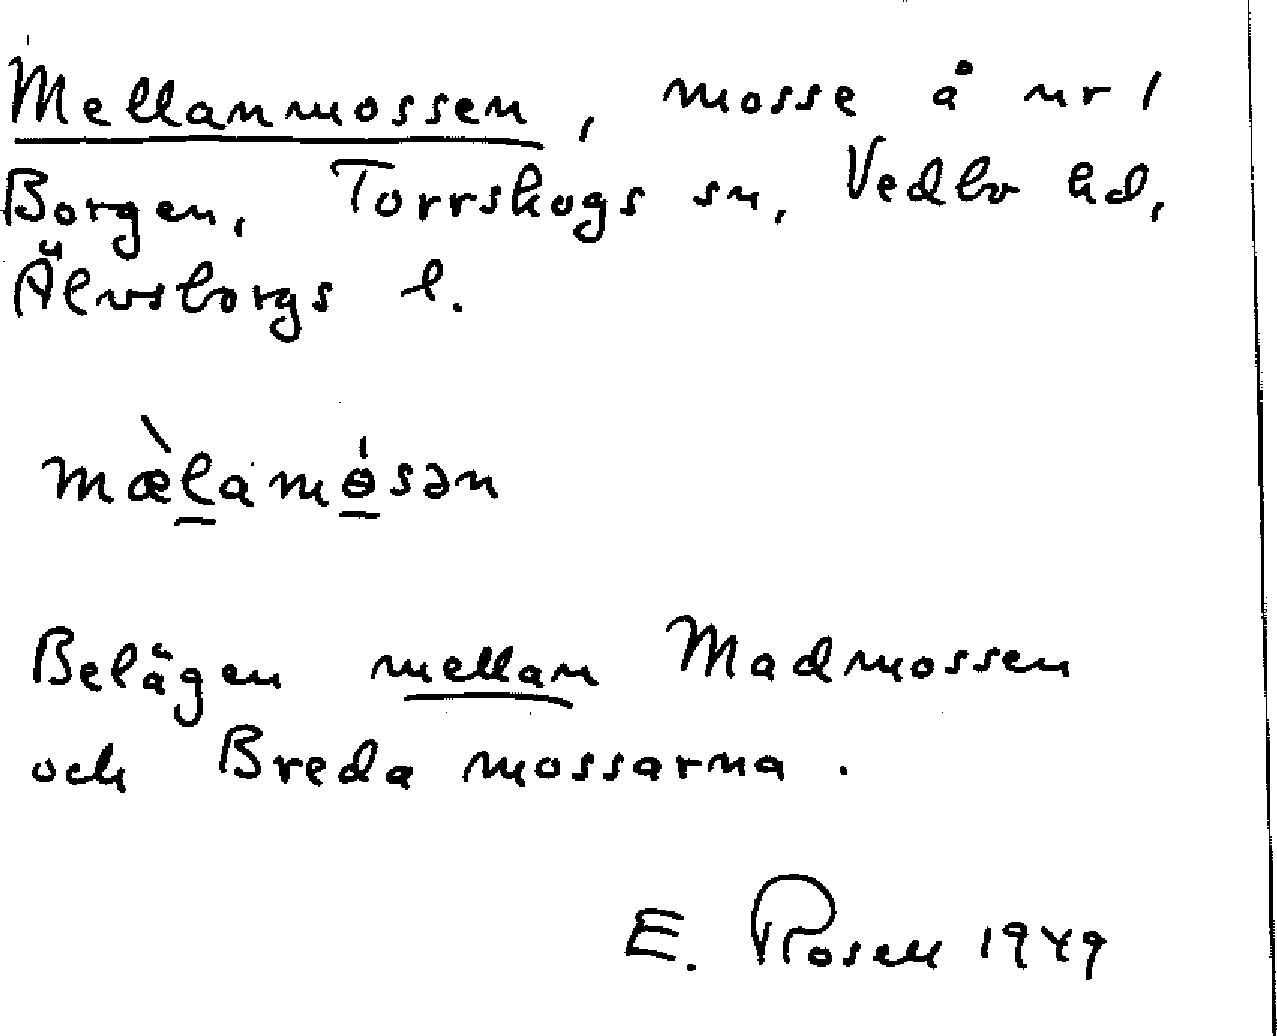 Mellanmossen, mosse å nr 1
Borgen, Torrskogs sn, Vedbo hd,
Älvsborgs l.
mæ̀lamɵ́sən
Belägen mellan Madmossen
och Breda mossarna.
E. Rosell 1949